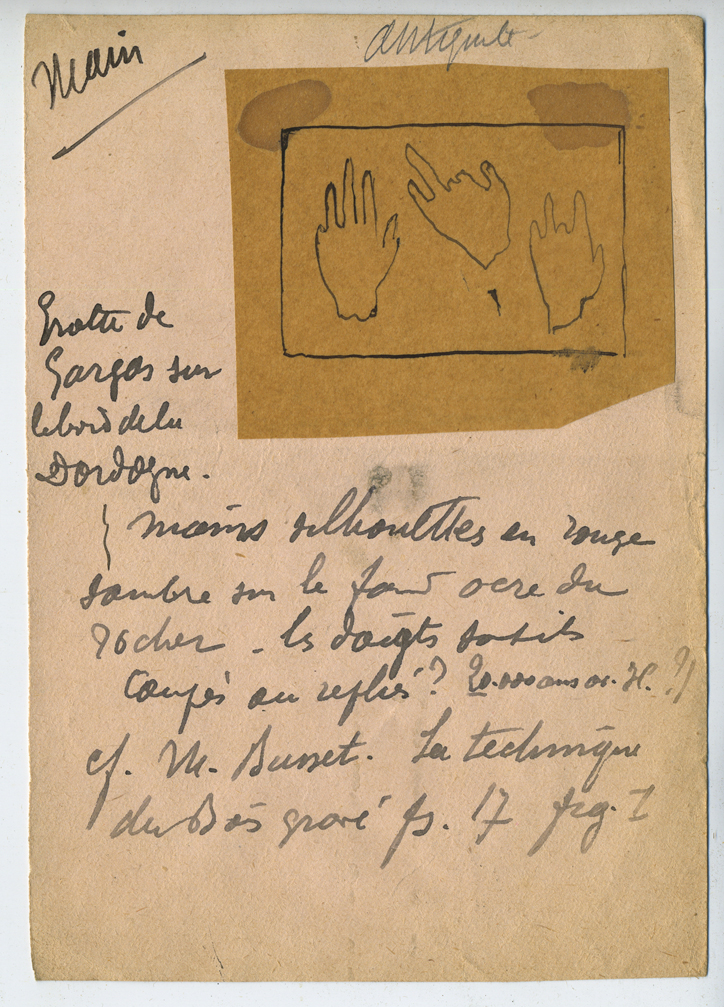 Main
antiquité
Grotte de
Gargas sur
le bord de la
Dordogne.
mains silhouettes en rouge
sombre sur le fond ocre du
rocher - les doigts sont ils
coupés ou repliés? 20.000 ans av. H. ?
cf. M. Busset. La technique
du Bois gravé fg. 17 fig. I